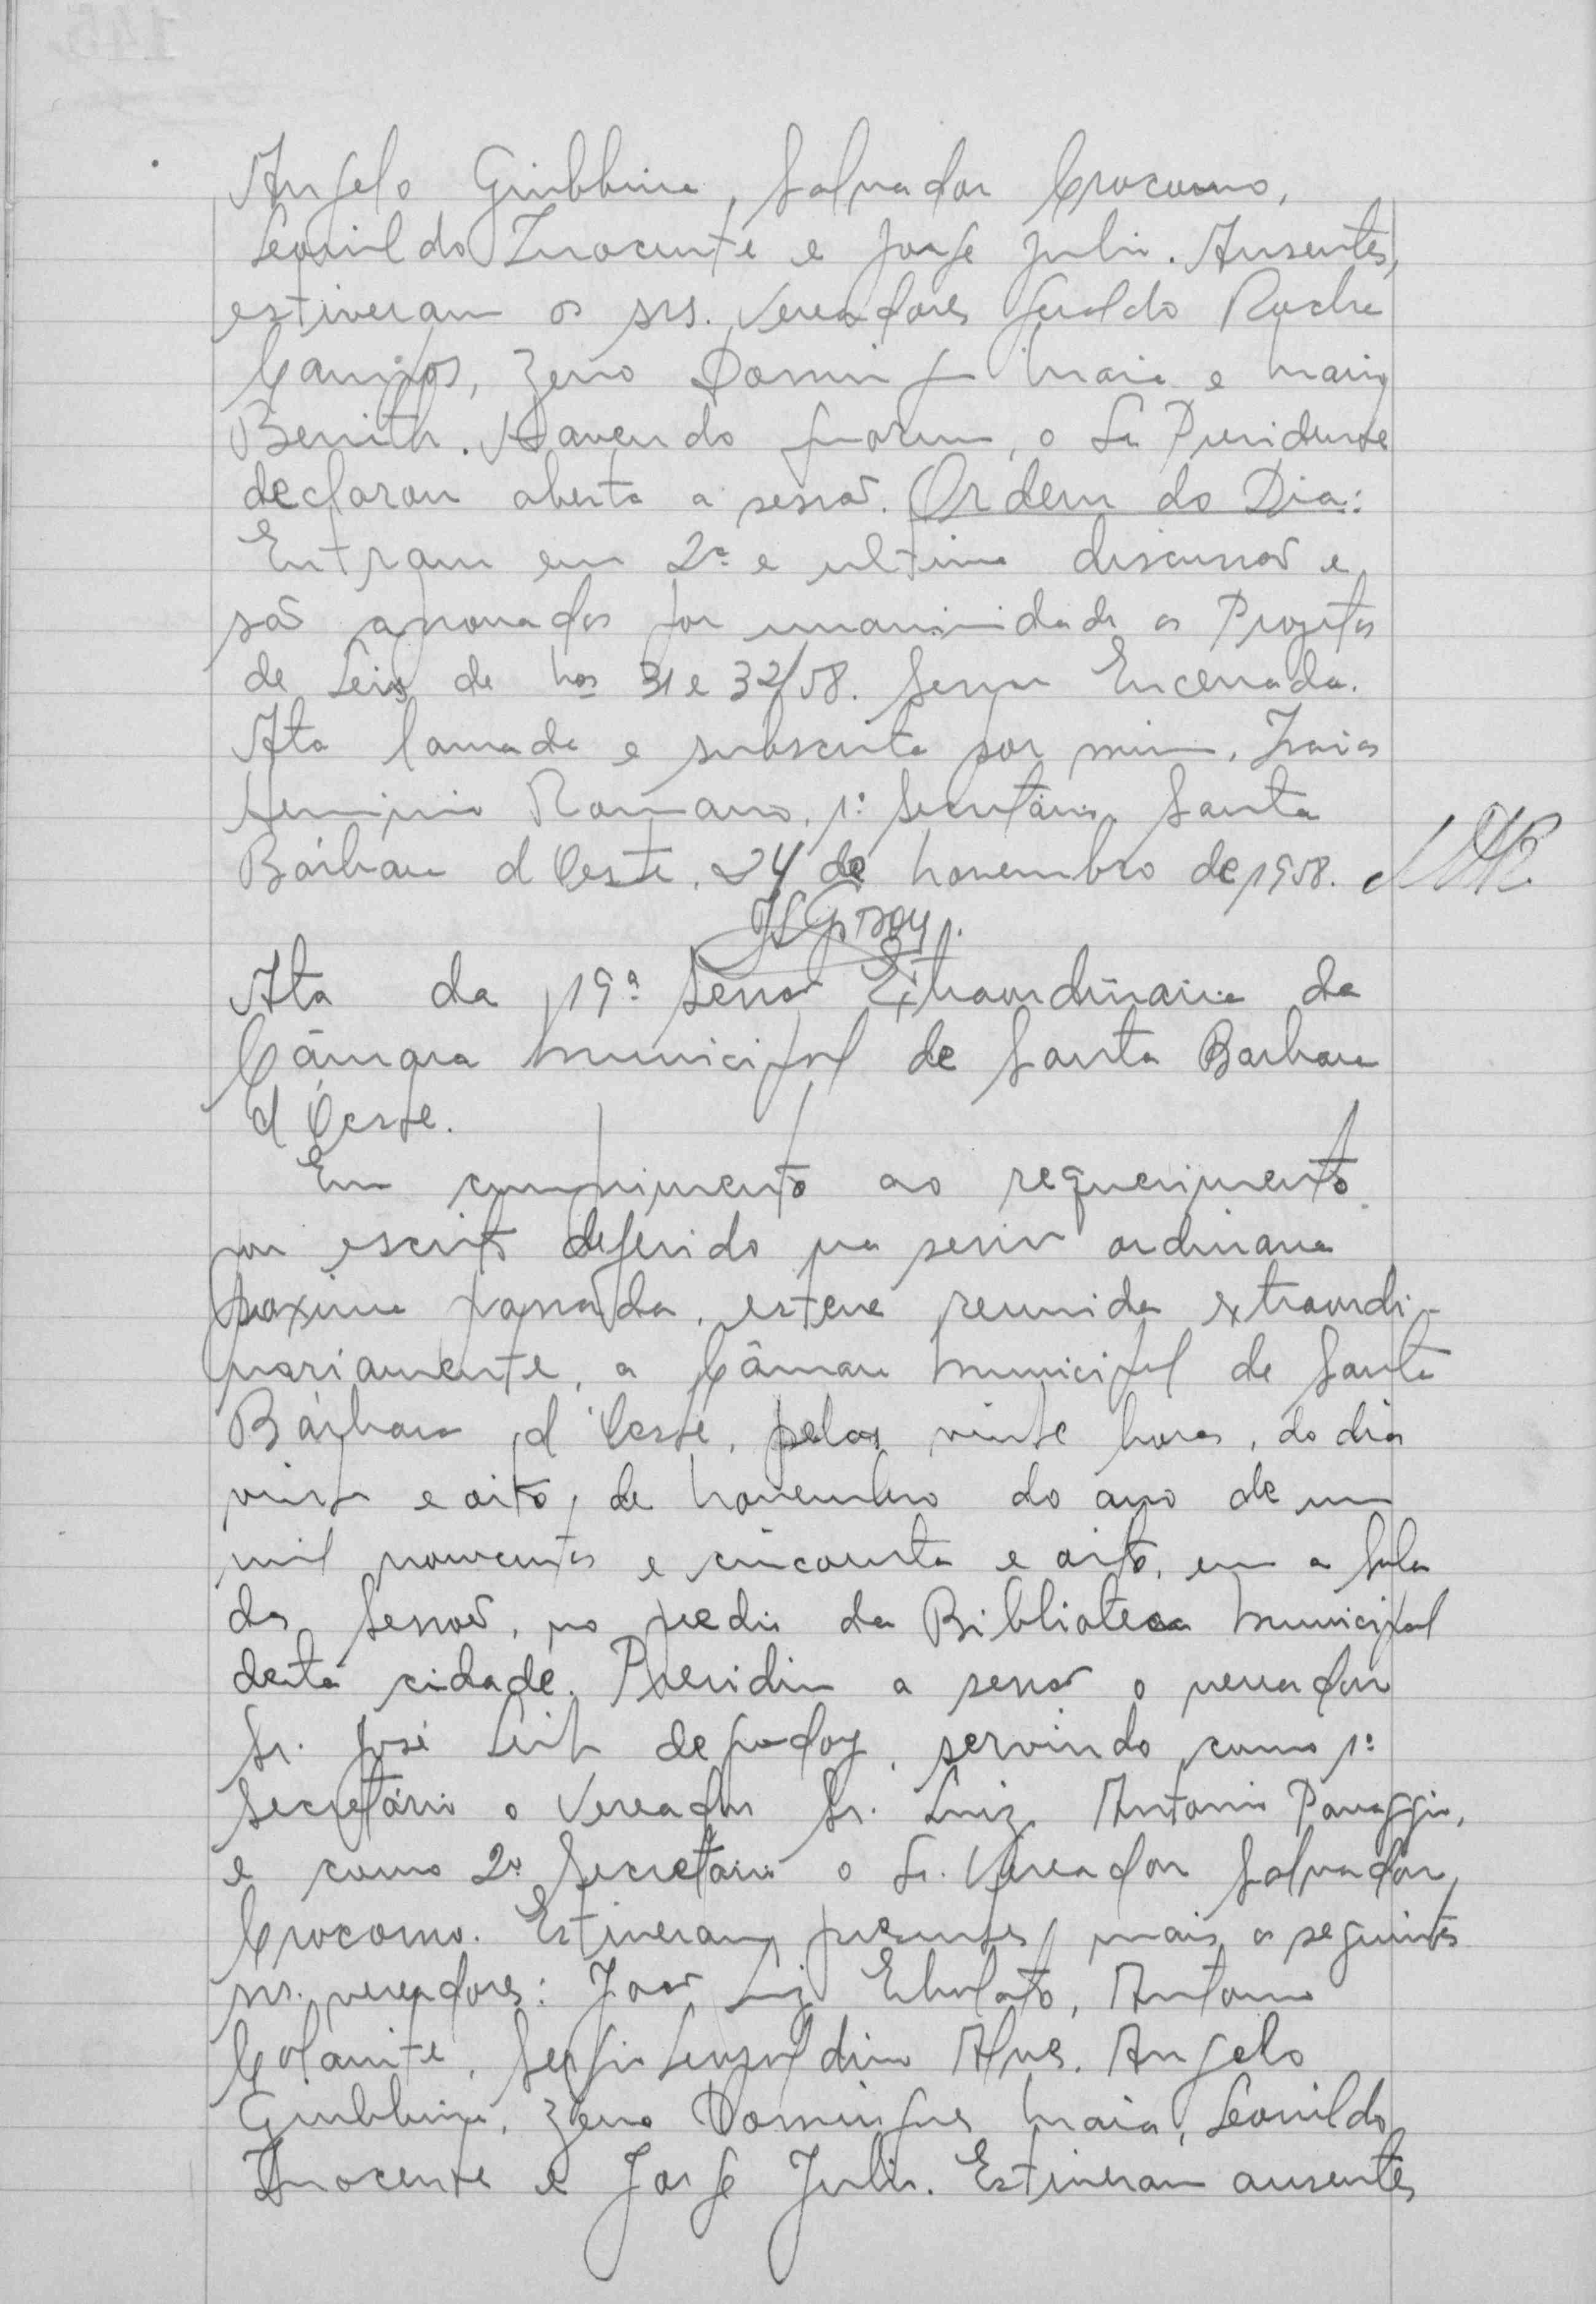 Angelo Giubbina, Salvador Crocomo,
Leonildo Inocente e Jorge Julio. Ausentes,
estiveram os srs. Vereadores Geraldo Rocha
Campos, Zeno Domingues Maia e Mario
Benith. Havendo quorum, o Sr Presidente
declarou aberta a sessão. Ordem do Dia:
Entram em 2ª e ultima discussão e
são aprovados por unanimidade os Projetos
de Leis de Nos 31 e 32/58. Sessão Encerrada.
Ata lavrada e subscrita por mim, Isaias
Herminio Romano, 1º Secretário Santa
Bárbara d'Oeste, 24 de Novembro de 1958.
Ata da 19ª Sessão Extraordinária da
Câmara Municipal de Santa Barbara
d'Oeste.
Em cumprimento ao requerimento
por escrito deferido na sessão ordinaria
proxima passada, esteve reunida extraordi-
nariamente, a Câmara Municipal de Santa
Bárbara d'Oeste, pelas vinte horas, do dia
vinte e oito, de Novembro do ano de um
mil novecentos e cincoenta e oito, em a Sala
das Sessões, no predio da Biblioteca Municipal
desta cidade. Presidiu a sessão o vereador
Sr. José Leite de Godoy, servindo como 1º
Secretário o Vereador Sr. Luiz Antonio Panaggio,
e como 2º Secretário o Sr. Vereador Salvador
Crocomo. Estiveram presentes mais os seguintes
srs. vereadores: João Luiz Antonio
Colamite, Sergio Leopoldino Alves, Angelo
Giubbina, Zeno Domingues Maia, Leonildo
Inocente e Jorge Julio. Estiveram ausentes